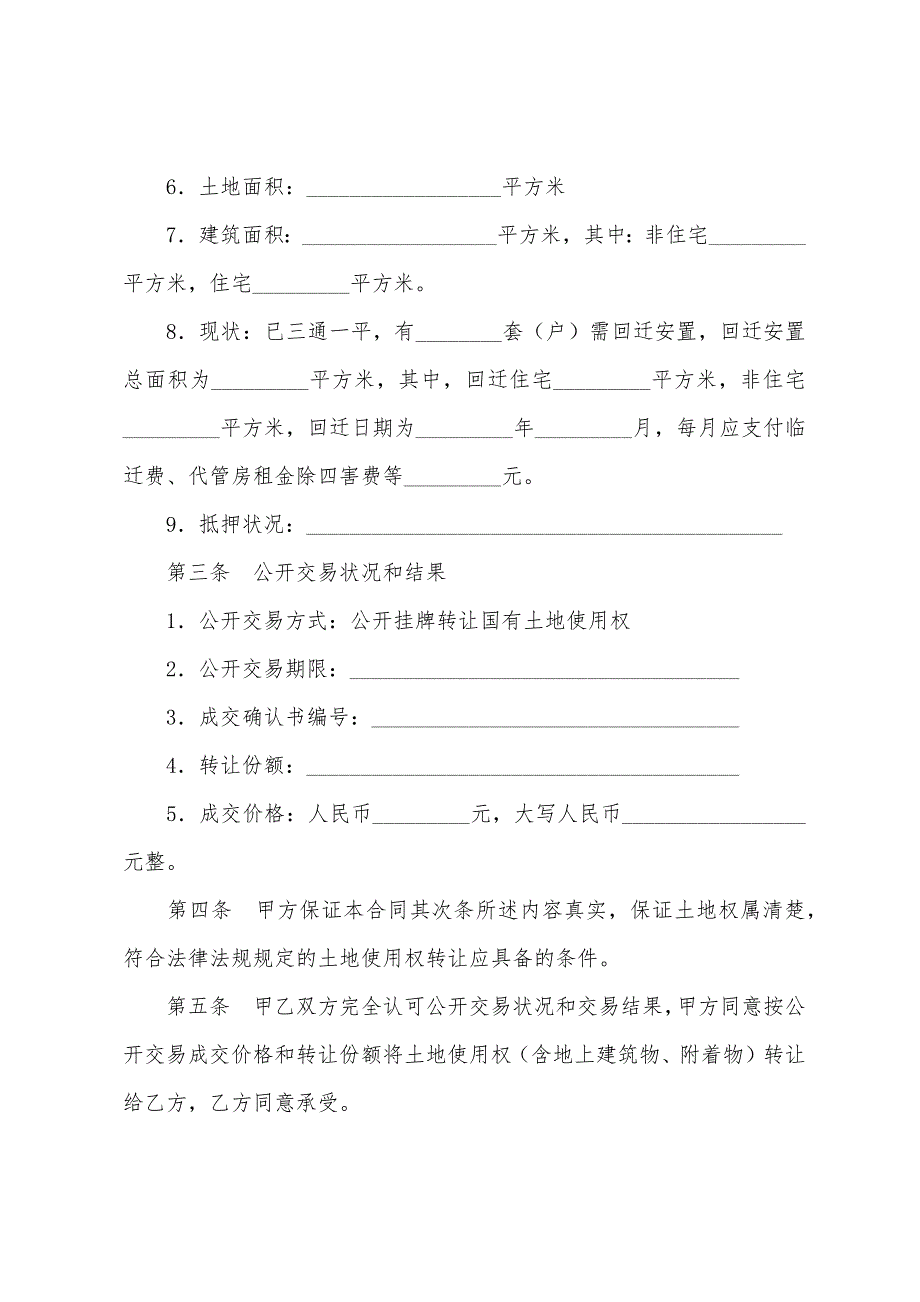 6．土地面积：__________________平方米
7．建筑面积：__________________平方米，其中：非住宅_________
平方米，住宅_________平方米。
8．现状：已三通一平，有________套（户）需回迁安置，回迁安置
总面积为_________平方米，其中，回迁住宅_________平方米，非住宅
_________平方米，回迁日期为_________年_________月，每月应支付临
迁费、代管房租金除四害费等_________元。
9．抵押状况：____________________________________________
第三条　公开交易状况和结果
1．公开交易方式：公开挂牌转让国有土地使用权
2．公开交易期限：____________________________________
3．成交确认书编号：__________________________________
4．转让份额：________________________________________
5．成交价格：人民币_________元，大写人民币_________________
元整。
第四条　甲方保证本合同其次条所述内容真实，保证土地权属清楚，
符合法律法规规定的土地使用权转让应具备的条件。
第五条　甲乙双方完全认可公开交易状况和交易结果，甲方同意按公
开交易成交价格和转让份额将土地使用权（含地上建筑物、附着物）转让
给乙方，乙方同意承受。